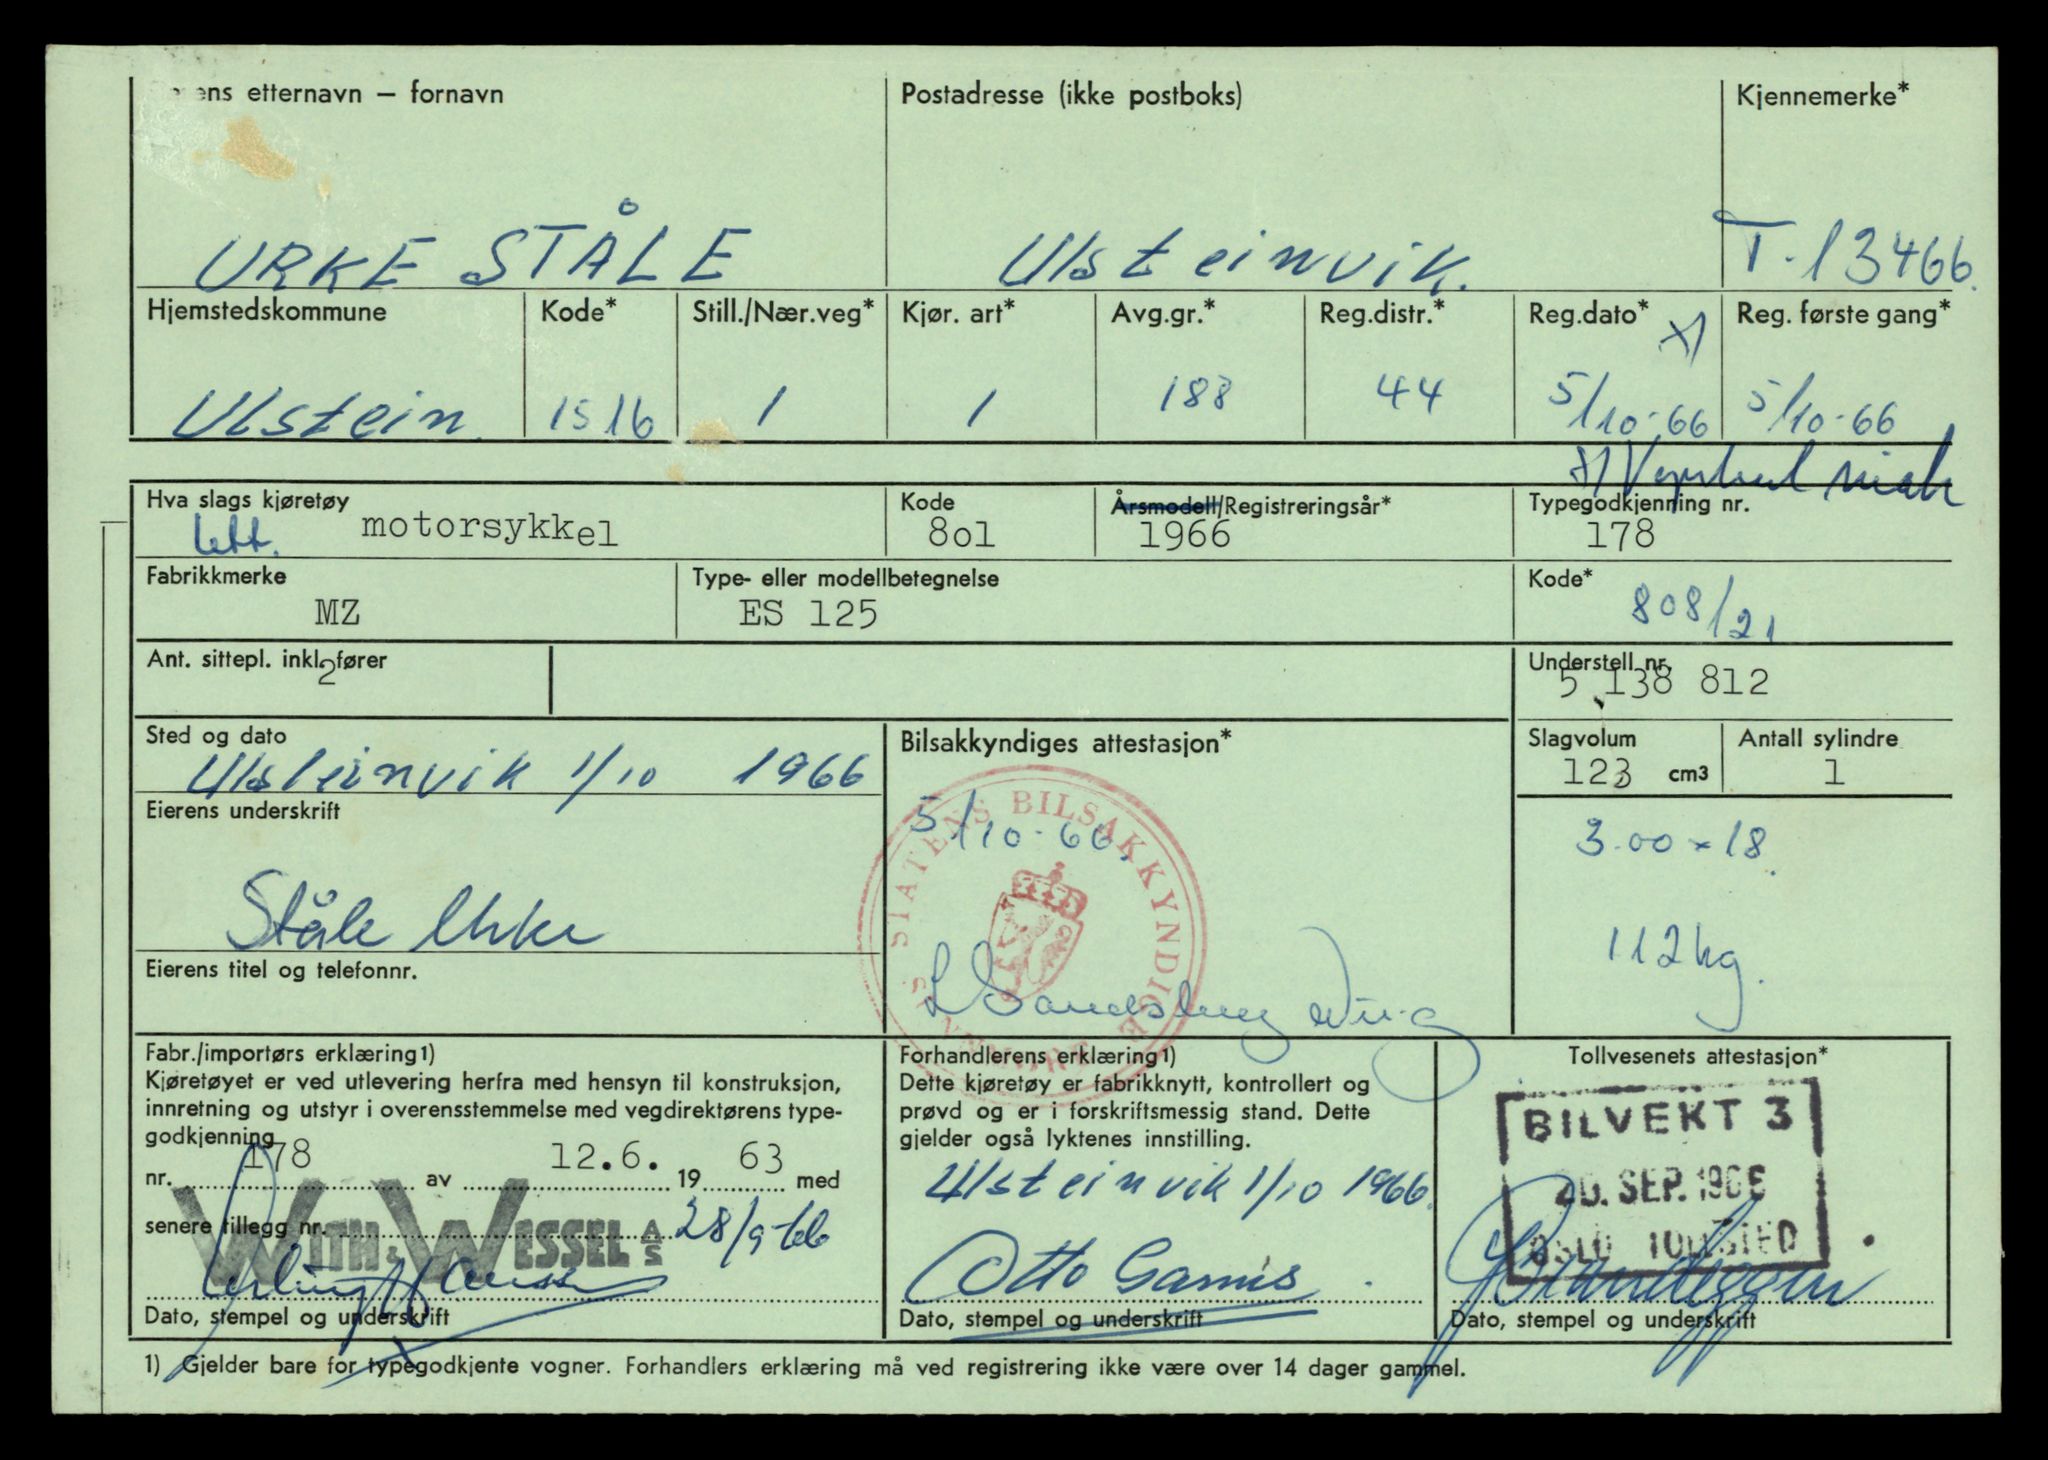 Eierens etternavn — fornavn Postadresse (ikke postboks) Kjennemerke*
URKE STÅLE Ulsteinvik. T-13466.
Hjemstedskommune Kode* Still./Nær.veg* Kjør. art* Avg.gr.* Reg.distr.* Reg.dato* x) Reg. første gang*
Ulstein. 1516 1 1 188 44 5/10-66 5/10-66
x)
Hva slags kjøretøy Kode Årsmodell/Registreringsår* Typegodkjenning nr.
lett. motorsykkel 8o1 1966 178
Fabrikkmerke Type- eller modellbetegnelse Kode*
MZ ES 125 808/21
Ant. sittepl. inkl. fører Understell nr.
2 5 138 812
Sted og dato Bilsakkyndiges attestasjon* Slagvolum Antall sylindre
Ulsteinvik 1/10 1966 123 cm3 1
Eierens underskrift 5/10-66. 3.00 x 18.
STATENS BILSAKKYNDIGE
Ståle Urke 112 kg.
Eierens titel og telefonnr.
Fabr./importørs erklæring1) Forhandlerens erklæring1) Tollvesenets attestasjon*
Kjøretøyet er ved utlevering herfra med hensyn til konstruksjon,
innretning og utstyr i overensstemmelse med vegdirektørens type-
godkjenning
nr. 178 av 12.6. 19 63 med
senere tillegg nr. 28/9-66
WITH & WESSEL A/S
Dato, stempel og underskrift
Dette kjøretøy er fabrikknytt, kontrollert og
prøvd og er i forskriftsmessig stand. Dette
gjelder også lyktenes innstilling.
Ulsteinvik 1/10 1966.
Otto Garnes
Dato, stempel og underskrift
BILVEKT 3
SEP. 1966
OSLO TOLLSTED
Dato, stempel og underskrift
1) Gjelder bare for typegodkjente vogner. Forhandlers erklæring må ved registrering ikke være over 14 dager gammel.